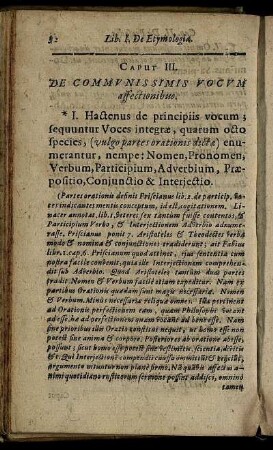 82 Lib. I. De Etymologia.
CAPUT III.
DE COMMVNISSIMIS VOCVM
affectionibus.
* I. Hactenus de principiis vocum;
sequuntur Voces integræ, quarum octo
species, (vulgo partes orationis dictæ) enu-
merantur, nempe; Nomen, Pronomen,
Verbum, Participium, Adverbium, Præ-
positio, Conjunctio & Interjectio.
(Partes orationis definit Priscianus lib. 2. de particip.
indicantes mentis conceptum, id est, cogitationem. Li-
nacer annotat, lib. 1. veteres sex tantum fuisse contentos, &
Participium Verbo, & Interjectionem Adverbio adnume-
rasse. Priscianus ponit 7. Aristoteles & Theodectes verba
modò & nomina & conjunctiones tradiderunt; ait Fabius
lib. 1. cap. 6. Priscianum quod attinet, eius sententia cum
nostra facilè combinari, quia ille Interjectionem comprehen-
dit sub Adverbio. Quod Aristoteles tantum duas partes
tradit Nomen & Verbum facilè etiam expeditur. Nam ex
partibus Orationis quædam sunt magis necessariæ. Nomen
& Verbum. Minus necessariæ reliquæ omnes. Illæ pertinent
ad Orationis perfectionem eam, quam Philosophi vocant
ad esse, hæ ad perfectionem quam vocant ad bene esse. Nam
ex prioribus illis Oratio constitui nequit, ut homo esse non
potest sine anima & corpore. Posteriores ab oratione abesse,
possunt; sicut homo esse potest sine divitiis, scientia, divitiis
&c. Qui Interjectionem
argumento utuntur non planè firmo. Na quibus affectus a-
nimi quotidiano rusticorum sermone possint addisci, omninò
tamen